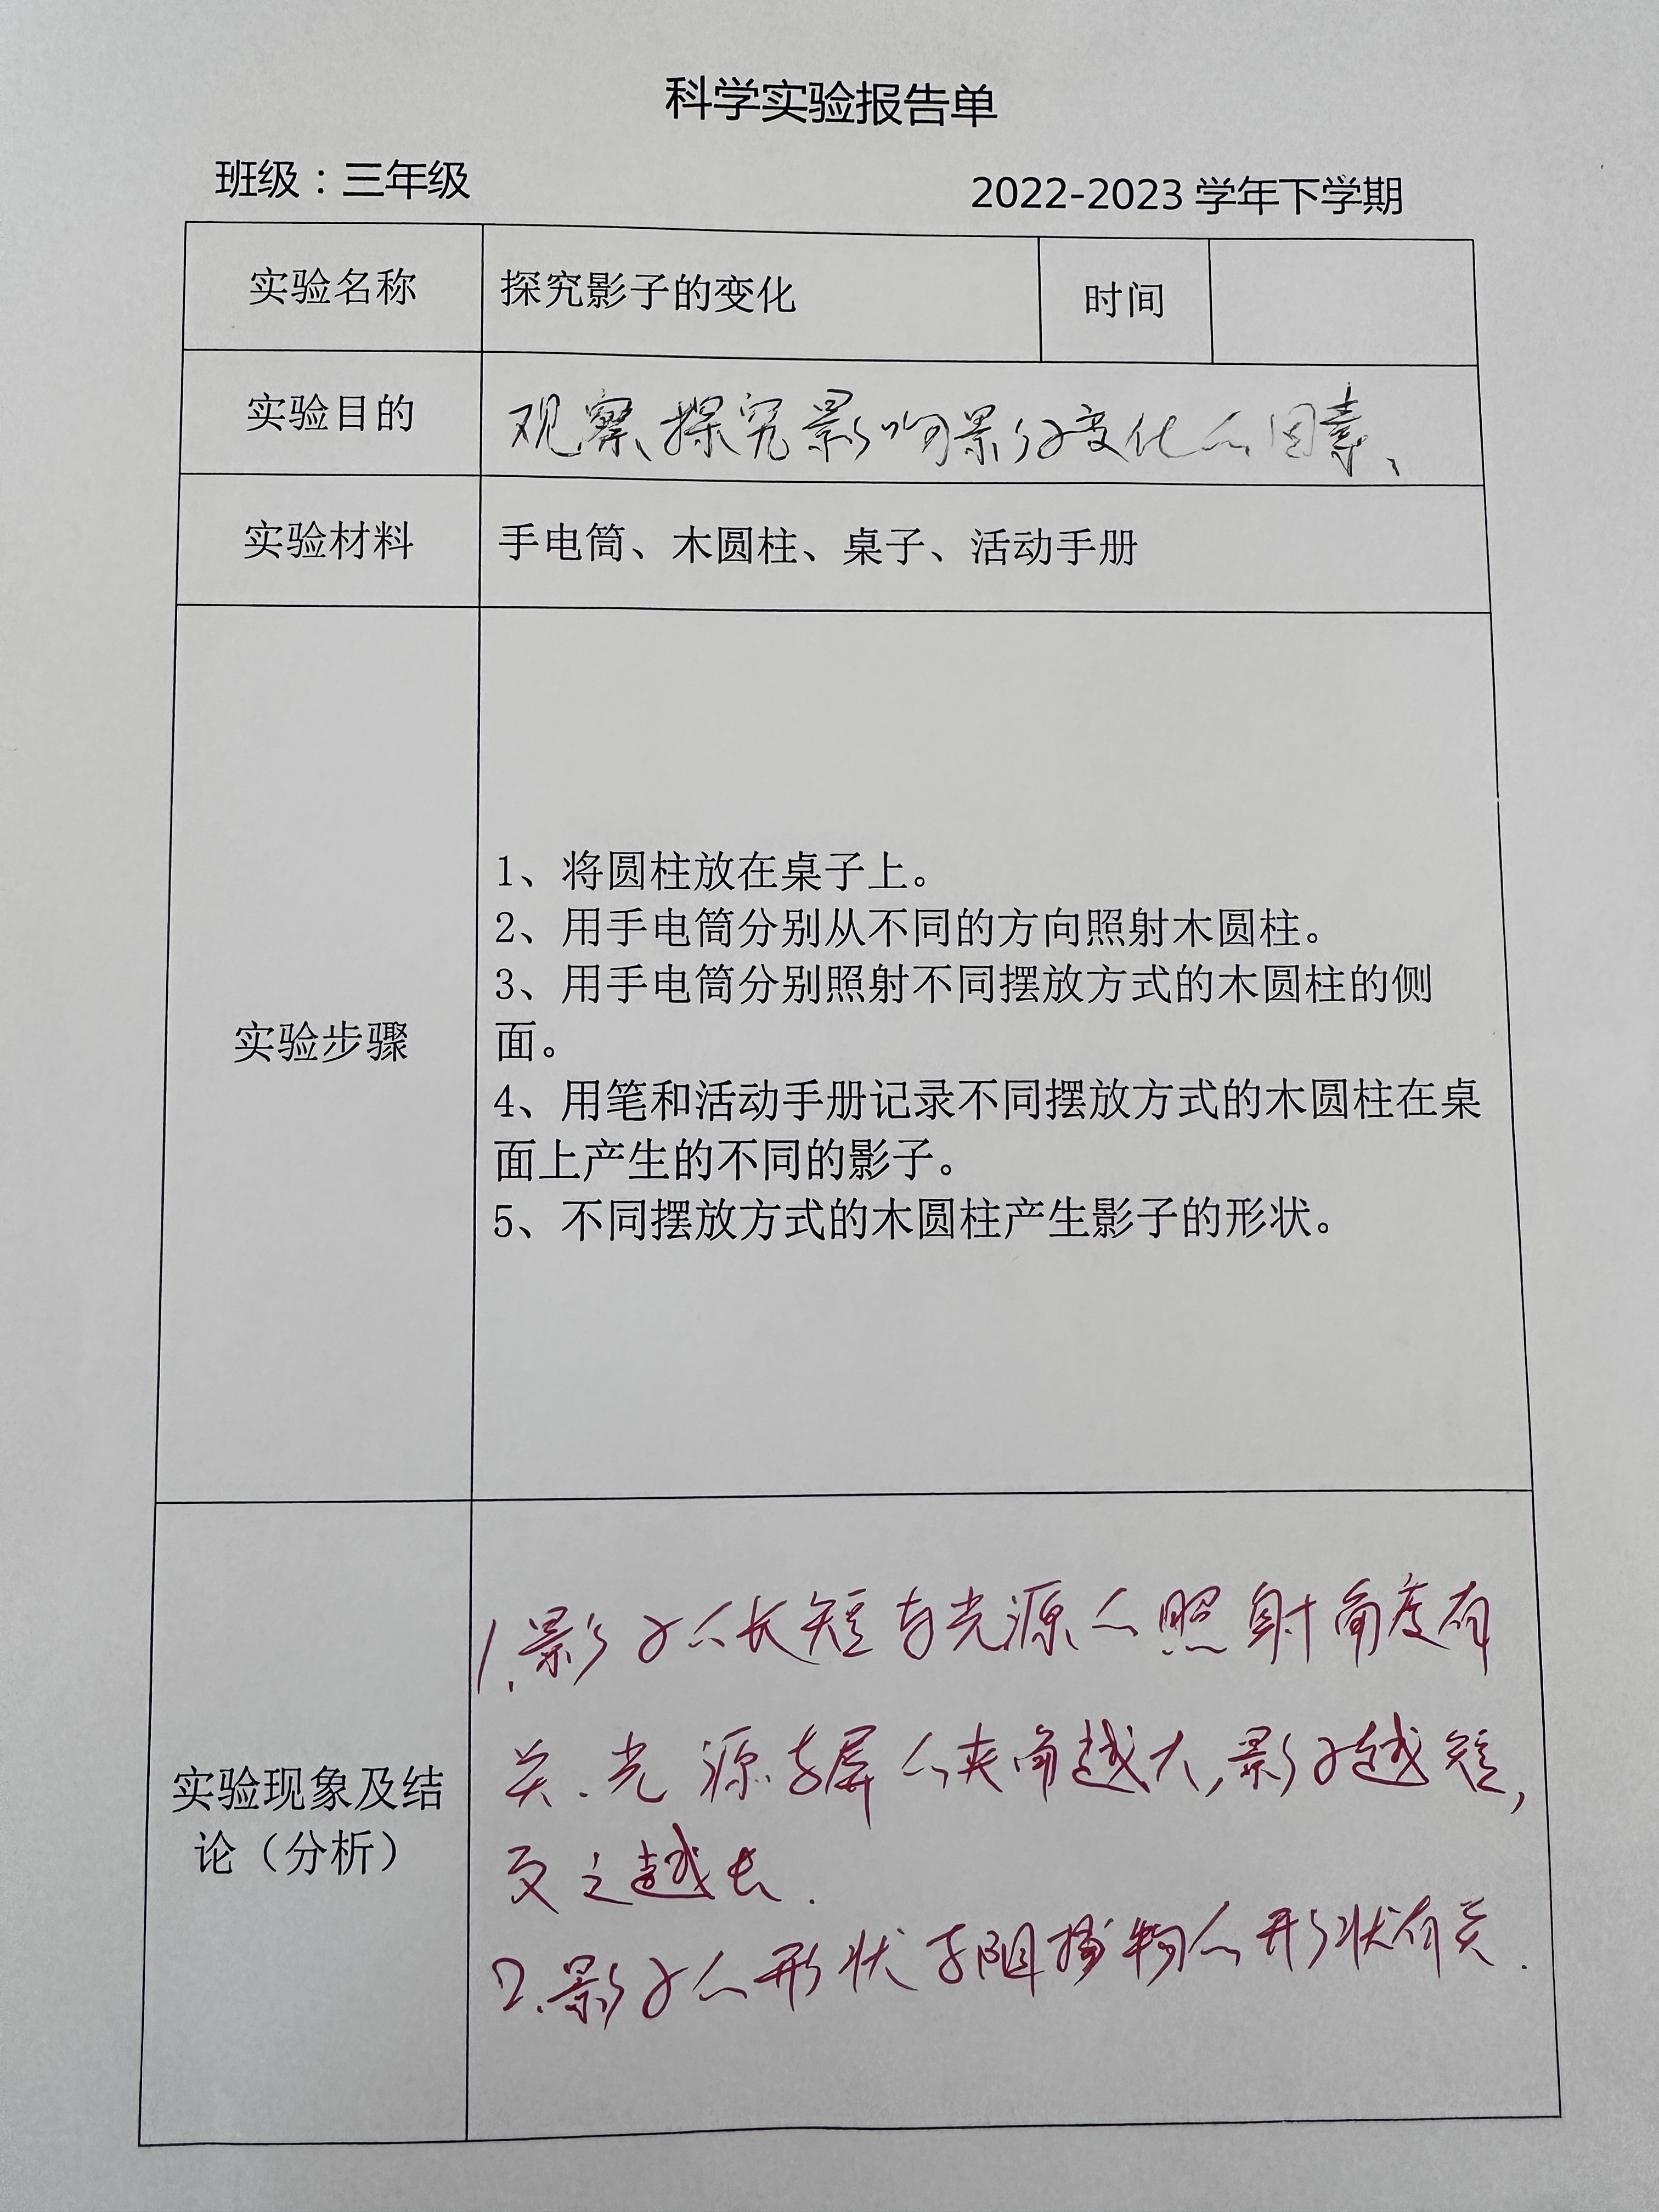 科学实验报告单
班级：三年级 2022-2023 学年下学期
实验名称 探究影子的变化 时间
实验目的 观察、探究影响影子变化的因素、
实验材料 手电筒、木圆柱、桌子、活动手册
实验步骤
1、将圆柱放在桌子上。
2、用手电筒分别从不同的方向照射木圆柱。
3、用手电筒分别照射不同摆放方式的木圆柱的侧
面。
4、用笔和活动手册记录不同摆放方式的木圆柱在桌
面上产生的不同的影子。
5、不同摆放方式的木圆柱产生影子的形状。
实验现象及结
论（分析）
1.影子的长短与光源的照射角度有
关.光源与屏的夹角越大,影子越短,
反之越长.
2.影子的形状与阻挡物的形状有关.